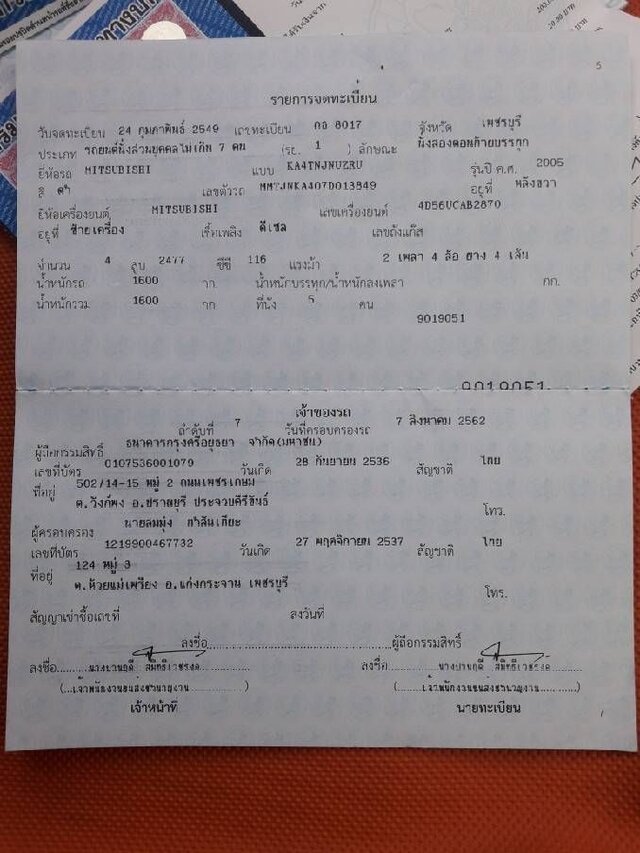 5
รายการจดทะเบียน
วันจดทะเบียน 24 กุมภาพันธ์ 2549 เลขทะเบียน กอ 8017 จังหวัด เพชรบุรี
ประเภท รถยนต์นั่งส่วนบุคคลไม่เกิน 7 คน (รย. 1 ) ลักษณะ นั่งสองตอนท้ายบรรทุก
ยี่ห้อรถ MITSUBISHI แบบ KA4TNJNUZRU รุ่นปี ค.ศ. 2005
สี ดำ เลขตัวรถ MMTJNKA407D013849 อยู่ที่ หลังขวา
ยี่ห้อเครื่องยนต์ MITSUBISHI เลขเครื่องยนต์ 4D56UCAB2870
อยู่ที่ ซ้ายเครื่อง เชื้อเพลิง ดีเซล เลขถังแก๊ส
จำนวน 4 สูบ 2477 ซีซี 116 แรงม้า 2 เพลา 4 ล้อ ยาง 4 เส้น
น้ำหนักรถ 1600 กก น้ำหนักบรรทุก/น้ำหนักลงเพลา กก.
น้ำหนักรวม 1600 กก ที่นั่ง 5 คน
9019051
9019051
เจ้าของรถ
ลำดับที่ 7 วันที่ครอบครองรถ 7 สิงหาคม 2562
ผู้ถือกรรมสิทธิ์ ธนาคารกรุงศรีอยุธยา จำกัด(มหาชน)
เลขที่บัตร 0107536001079 วันเกิด 28 กันยายน 2536 สัญชาติ ไทย
ที่อยู่ 502/14-15 หมู่ 2 ถนนเพชรเกษม
ต.วังก์พง อ.ปราณบุรี ประจวบคีรีขันธ์ โทร.
ผู้ครอบครอง
เลขที่บัตร 1219900467732 วันเกิด 27 พฤศจิกายน 2537 สัญชาติ ไทย
ที่อยู่ 124 หมู่ 3
ต.ห้วยแม่เพรียง อ.แก่งกระจาน เพชรบุรี โทร.
สัญญาเช่าซื้อเลขที่ ลงวันที่
ลงชื่อ ผู้ถือกรรมสิทธิ์
ลงชื่อ ลงชื่อ
(เจ้าพนักงานขนส่งชำนาญงาน) (เจ้าพนักงานขนส่งชำนาญงาน)
เจ้าหน้าที่ นายทะเบียน